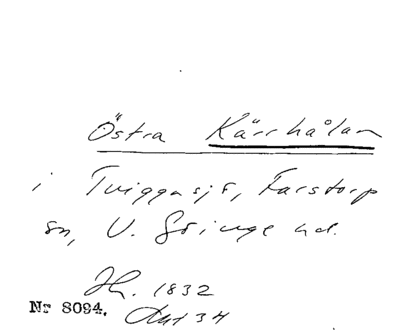 Östra Kärrhålan
i Tviggasjö, Farstorp
sn, V. Göinge hd.
Hm. 1832
Nr 8094. Akt 34